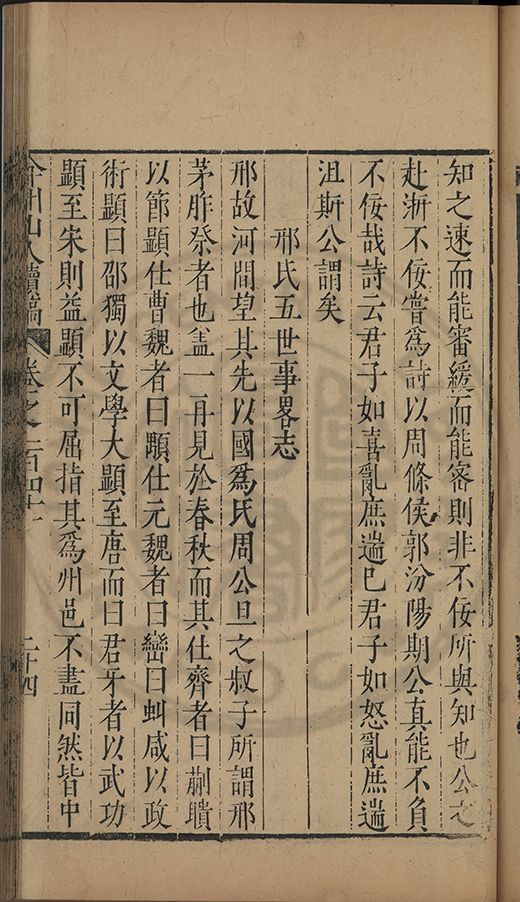 知之速而能審緩而能審則非不佞所與知也公之
赴浙不佞嘗爲詩以周條侯郭汾陽期公真能不負
不佞哉詩云君子如喜亂庶遄已君子如怒亂庶遄
沮斯公謂矣
邢氏五世事畧志
邢故河間望其先以國爲氏周公旦之叔子所謂邢
茅胙祭者也盖一再見於春秋而其仕齊者曰蒯聵
以節顯仕曹魏者曰顒仕元魏者曰巒曰虯咸以政
術顯曰邵獨以文學大顯至唐而曰君牙者以武功
顯至宋則益顯不可屈指其爲州邑不盡同然皆中
弇州山人續稿 卷之一百四十一 二十四